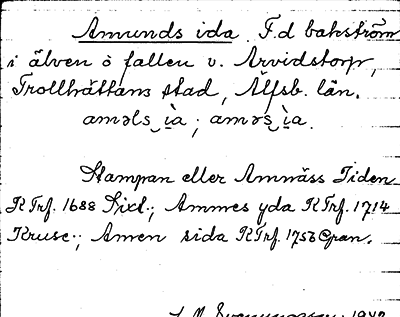 Amunds ida. F.d bakström
i älven ö fallen v. Arvidstorp,
Trollhättans stad, Älfsb. län.
aməls ìa ; aməs ìa.
Stampan eller Amnäss Tiden
KTrf. 1688 Sixt.; Ammes yda KTrf. 1714
Kruse.; Amen sida KTrf. 1756 Cpan.